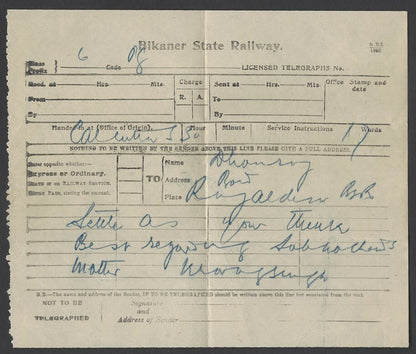 Bikaner State Railway.
Class
Prefix 6 Code LICENSED TELEGRAPHS No.
Recd. at Hrs. Mts. Charge Sent at Hrs. Mts. Office Stamp and date
From R. A. To
By By
Handed in at (Office of Origin). Hour Minute Service Instructions Words
Calcutta 17
NOTHING TO BE WRITTEN BY THE SENDER ABOVE THIS LINE PLEASE GIVE A FULL ADDRESS.
Enter opposite whether—
Express or Ordinary.
STATE OR ON RAILWAY SERVICE.
REPLY PAID, stating the amount.
TO
Name
Address
Place
Settle as you think
Best regarding
Matter
N.B.—The name and address of the Sender, IF TO BE TELEGRAPHED should be written above this line but separated from the text.
NOT TO BE TELEGRAPHED
Signature and Address of Sender